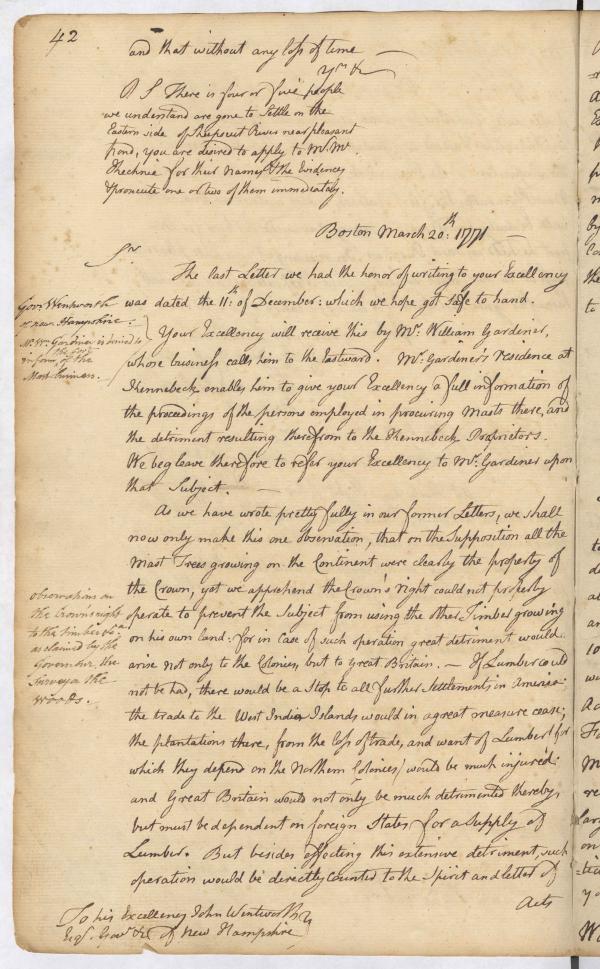 42
and that without any loss of time —
Yrs &c
P S There is four or five people
we understand are gone to Settle on the
Eastern side of Sheepscut River near pleasant
pond, you are desired to apply to Mr. Mc.
Kechnie for their Names & the Evidences
& prosecute one or two of them immediately.
Boston March 20th: 1771 —
Sr.
The last Letter we had the honor of writing to your Excellency
was dated the 11th: of December: which we hope got safe to hand.
Govr. Wentworth
of new Hampshire.
Mr. Wm. Gardiner is desired to
inform of the
Mast business.
Your Excellency will receive this by Mr. William Gardiner,
whose business calls him to the Eastward. Mr. Gardiner's residence at
Kennebeck enables him to give your Excellency a full information of
the proceedings of the persons employed in procuring Masts there, and
the detriment resulting therefrom to the Kennebeck Proprietors.
We beg leave therefore to refer your Excellency to Mr. Gardiner upon
that Subject. —
As we have wrote pretty fully in our former Letters, we shall
now only make this one observation, that on the Supposition all the
Mast Trees growing on the Continent were clearly the property of
the Crown, yet we apprehend the Crown's right could not properly
operate to prevent the Subject from using the other Timber growing
on his own land: for in case of such operation great detriment would
arise not only to the Colonies, but to Great Britain. — If Lumber could
not be had, there would be a Stop to all further Settlements in America:
the trade to the West India Islands would in a great measure cease;
the plantations there, from the loss of trade, and want of Lumber (for
which they depend on the Northern Colonies) would be much injured:
and Great Britain would not only be much detrimented thereby,
but must be dependent on foreign States for a Supply of
Lumber. But besides effecting this extensive detriment, such
operation would be directly counter to the Spirit and letter of
Acts
observations on
the Crowns right
to the timber &ca
as claimed by the
Governour, the
Surveyr. of the
Woods.
To his Excellency John Wentworth
Esqr. Govr. &c of New Hampshire